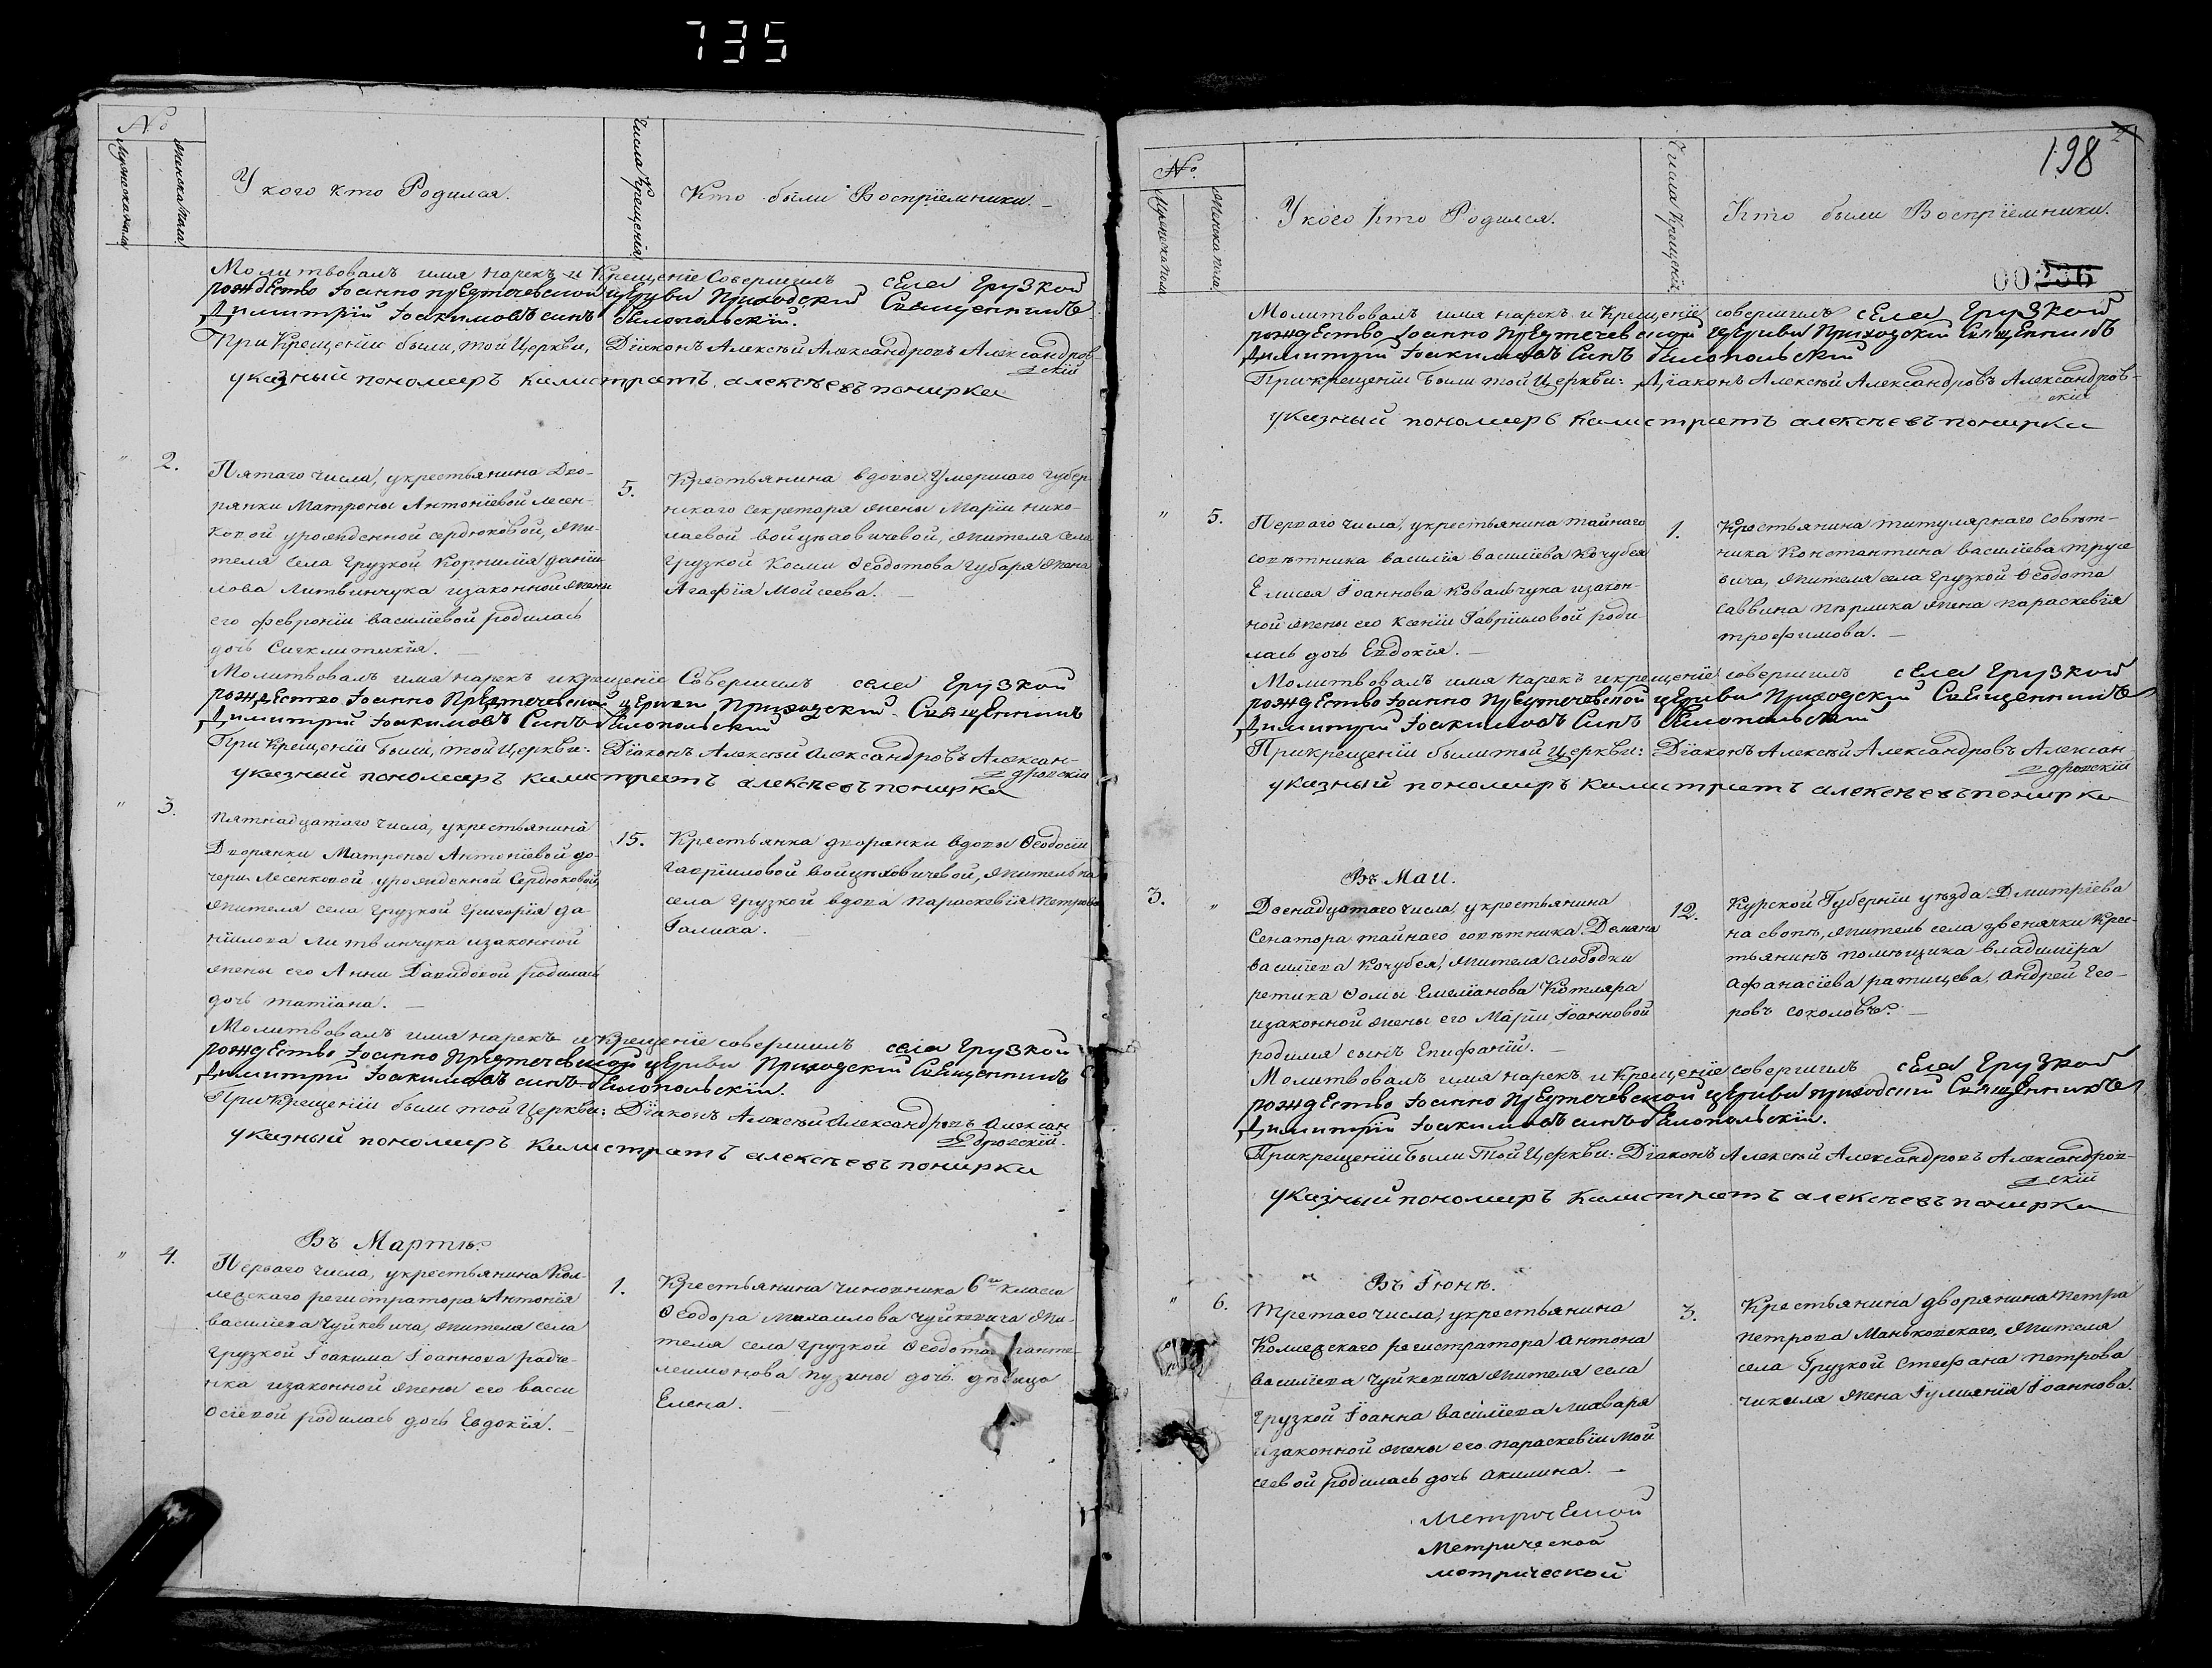 735
№
Мужеска пола
Женска пола
У кого кто Родился.
Числа Крещенія
Кто были Воспріемники.
Молитвовалъ имя нарекъ и Крещеніе Совершилъ села Грузкой
рождество Іоанно предтечевской церкви Приходскій Священникъ
Димитрій Іоакимовъ синъ Бѣлопольскій.
При Крещеніи были, той Церкви, Діаконъ Алексѣй Александровъ Александров-
скій
указный пономаръ Калистратъ алексѣевъ понирка
" 2.
Пятаго числа, укрестьянина Дво-
рянки Матроны Антоніевой лесен-
ковой урожденной сердюковой, жи-
теля села Грузкой Корнилія даніи-
лова Литвинчука изаконной жены
его февроніи василіевой родилась
дочь Сигклитикія.
5.
Крестьянина вдовы Умершаго губер-
нскаго секретаря жены Маріи нико-
лаевой войцѣховичевой, жителя села
Грузкой Косми Ѳеодотова Губаря жена
Агафія Мойсеева.
Молитвовалъ имя нарекъ икрещеніе Совершилъ села Грузкой
рождество Іоанно Предтечевской церкви Приходскій Священникъ
Димитрій Іоакимовъ Синъ Бѣлопольскій
При Крещеніи были, той Церкви: Діаконъ Алексѣй Александровъ Алексан-
дровскій
указный пономаръ калистратъ алексѣевъ понирка
" 3.
Пятнадцатаго числа, укрестьянина
Дворянки Матроны Антоніевой до-
чери Лесенковой урожденной Сердюковой,
жителя села Грузкой Григорія да-
ніилова Литвинчука изаконной
жены его Анни Давидовой родилась
дочь татіана.
15.
Крестьянка дворянки вдовы Ѳеодосіи
Гавріиловой войцѣховичевой, жителька
села Грузкой вдова параскевія петрова
Галиха.
Молитвовалъ имя нарекъ и Крещеніе совершилъ села Грузкой
рождество Іоанно Предтечевской церкви Приходскій Священникъ
Димитрій Іоакимовъ синъ Бѣлопольскій.
При Крещеніи были той Церкви: Діаконъ Алексѣй Александровъ Алексан
дровскій.
указный пономаръ Калистратъ алексѣевъ понирка
Въ Мартѣ.
" 4.
Перваго числа, укрестьянина Кол-
лежскаго регистратора Антонія
василіева Чуйкевича, жителя села
Грузкой Іоакима Іоаннова радче-
нка изаконной жены его васси
Осіевой родилась дочь Евдокія.
1.
Крестьянина чиновника 6го класса
Ѳеодора Михаилова Чуйкевича жи-
теля села Грузкой Ѳеодота панте-
леимонова пузины дочь дѣвица
Елена.
198
№
Мужеска пола
Женска пола
У кого кто Родился.
Числа Крещенія
Кто были Воспріемники.
00236
Молитвовалъ имя нарекъ и Крещеніе совершилъ села Грузкой
рождество Іоанно Предтечевской церкви Приходскій Священникъ
Димитрій Іоакимовъ Синъ Бѣлопольскій
При крещеніи были той Церкви: Діаконъ Алексѣй Александровъ Александров-
скій
указный пономаръ Калистратъ алексѣевъ понирка
" 5.
Перваго числа, укрестьянина тайнаго
совѣтника василія василіева Кочубея
Елисея Іоаннова Ковальчука изакон-
ной жены его Ксеніи Гавріиловой роди-
лась дочь Евдокія.
1.
Крестьянина титулярнаго совѣт-
ника Константина василіева
жителя села Грузкой Ѳеодота
саввина пѣрлика жена параскевія
трофимова.
Молитвовалъ имя нарекъ икрещеніе совершилъ села Грузкой
рождество Іоанно Предтечевской церкви Приходскій Священникъ
Димитрій Іоакимовъ Синъ Бѣлопольскій
При крещеніи были той Церкви: Діаконъ Алексѣй Александровъ Алексан-
дровскій
указный пономаръ калистратъ алексѣевъ понирка
Въ Маи.
3. "
Двенадцатаго числа, укрестьянина
Сенатора тайнаго совѣтника Демяна
василіева Кочубея, жителя слободки
ретика Ѳомы Емеліанова Котляра
изаконной жены его Маріи Іоанновой
родился сынъ Епифаній.
12.
Курской Губерніи уѣзда Дмитріева
на свопѣ, житель села звенячки крес-
тьянинъ помѣщика владимира
афанасіева ратищева, андрей Гео-
ровъ соколовъ.
Молитвовалъ имя нарекъ и Крещеніе совершилъ села Грузкой
рождество Іоанно Предтечевской церкви приходскій Священникъ
Димитрій Іоакимовъ синъ Бѣлопольскій.
При крещеніи были Той Церкви: Діаконъ Алексѣй Александровъ Александров-
скій
указный пономаръ Калистратъ алексѣевъ понирка
Въ Іюнѣ.
" 6.
Третаго числа, укрестьянина
Коллежскаго регистратора Антона
василіева Чуйкевича жителя села
Грузкой Іоанна василіева лихваря
изаконной жены его параскевіи Мой
сеевой родилась дочь акилина.
3.
Крестьянина дворянина петра
петрова Маньковскаго, жителя
села Грузкой Стефана петрова
чикаля жена Іулианія Іоаннова.
Метрической
Метрической
метрической